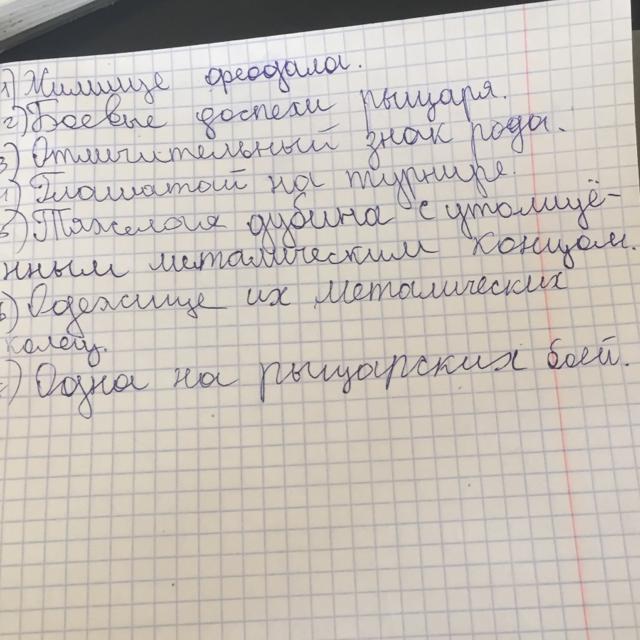 1) Жилище феодала.
2) Боевые доспехи рыцаря.
3) Отличительный знак рода.
4) Глашатой на турнире.
5) Тяжелая дубина с утолщё-
нным металическим концом.
6) Одежище их металических
колец.
7) Одна на рыцарских боёй.